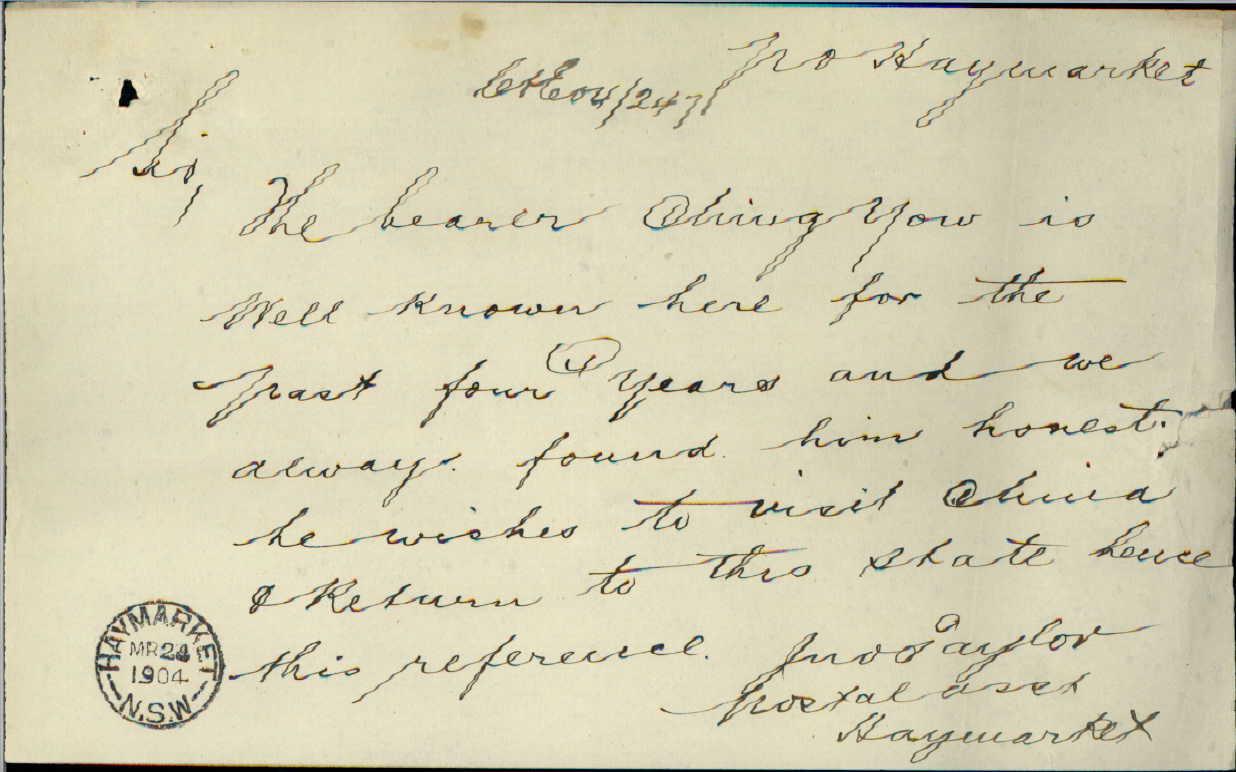 P O Haymarket
04/2471
Sir,
The bearer Ching Yow is
Well Known here for the
past four years and we
always found him honest.
he wishes to visit China
& Return to this state hence
this reference. Jno Taylor
Postal asst
Haymarket
HAYMARKET
MR 24
1904
N.S.W